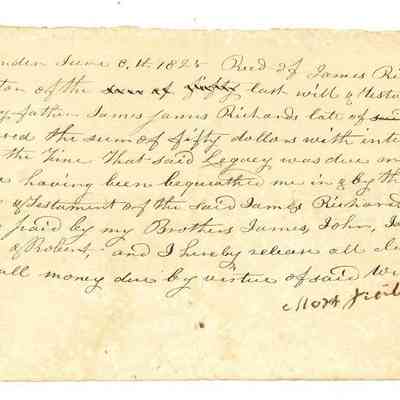 nden June 8th. 1825 Recd of James Ri
tor of the last will & Testa
y father James Richards late of
ed the sum of fifty dollars with inte
the Time that said Legacy was due an
having been bequathed me in & by th
& Testament of the said James Richard
paid by my Brothers James, John, I
& Robert, and I hereby release all cl
all money due by virtue of said Wi